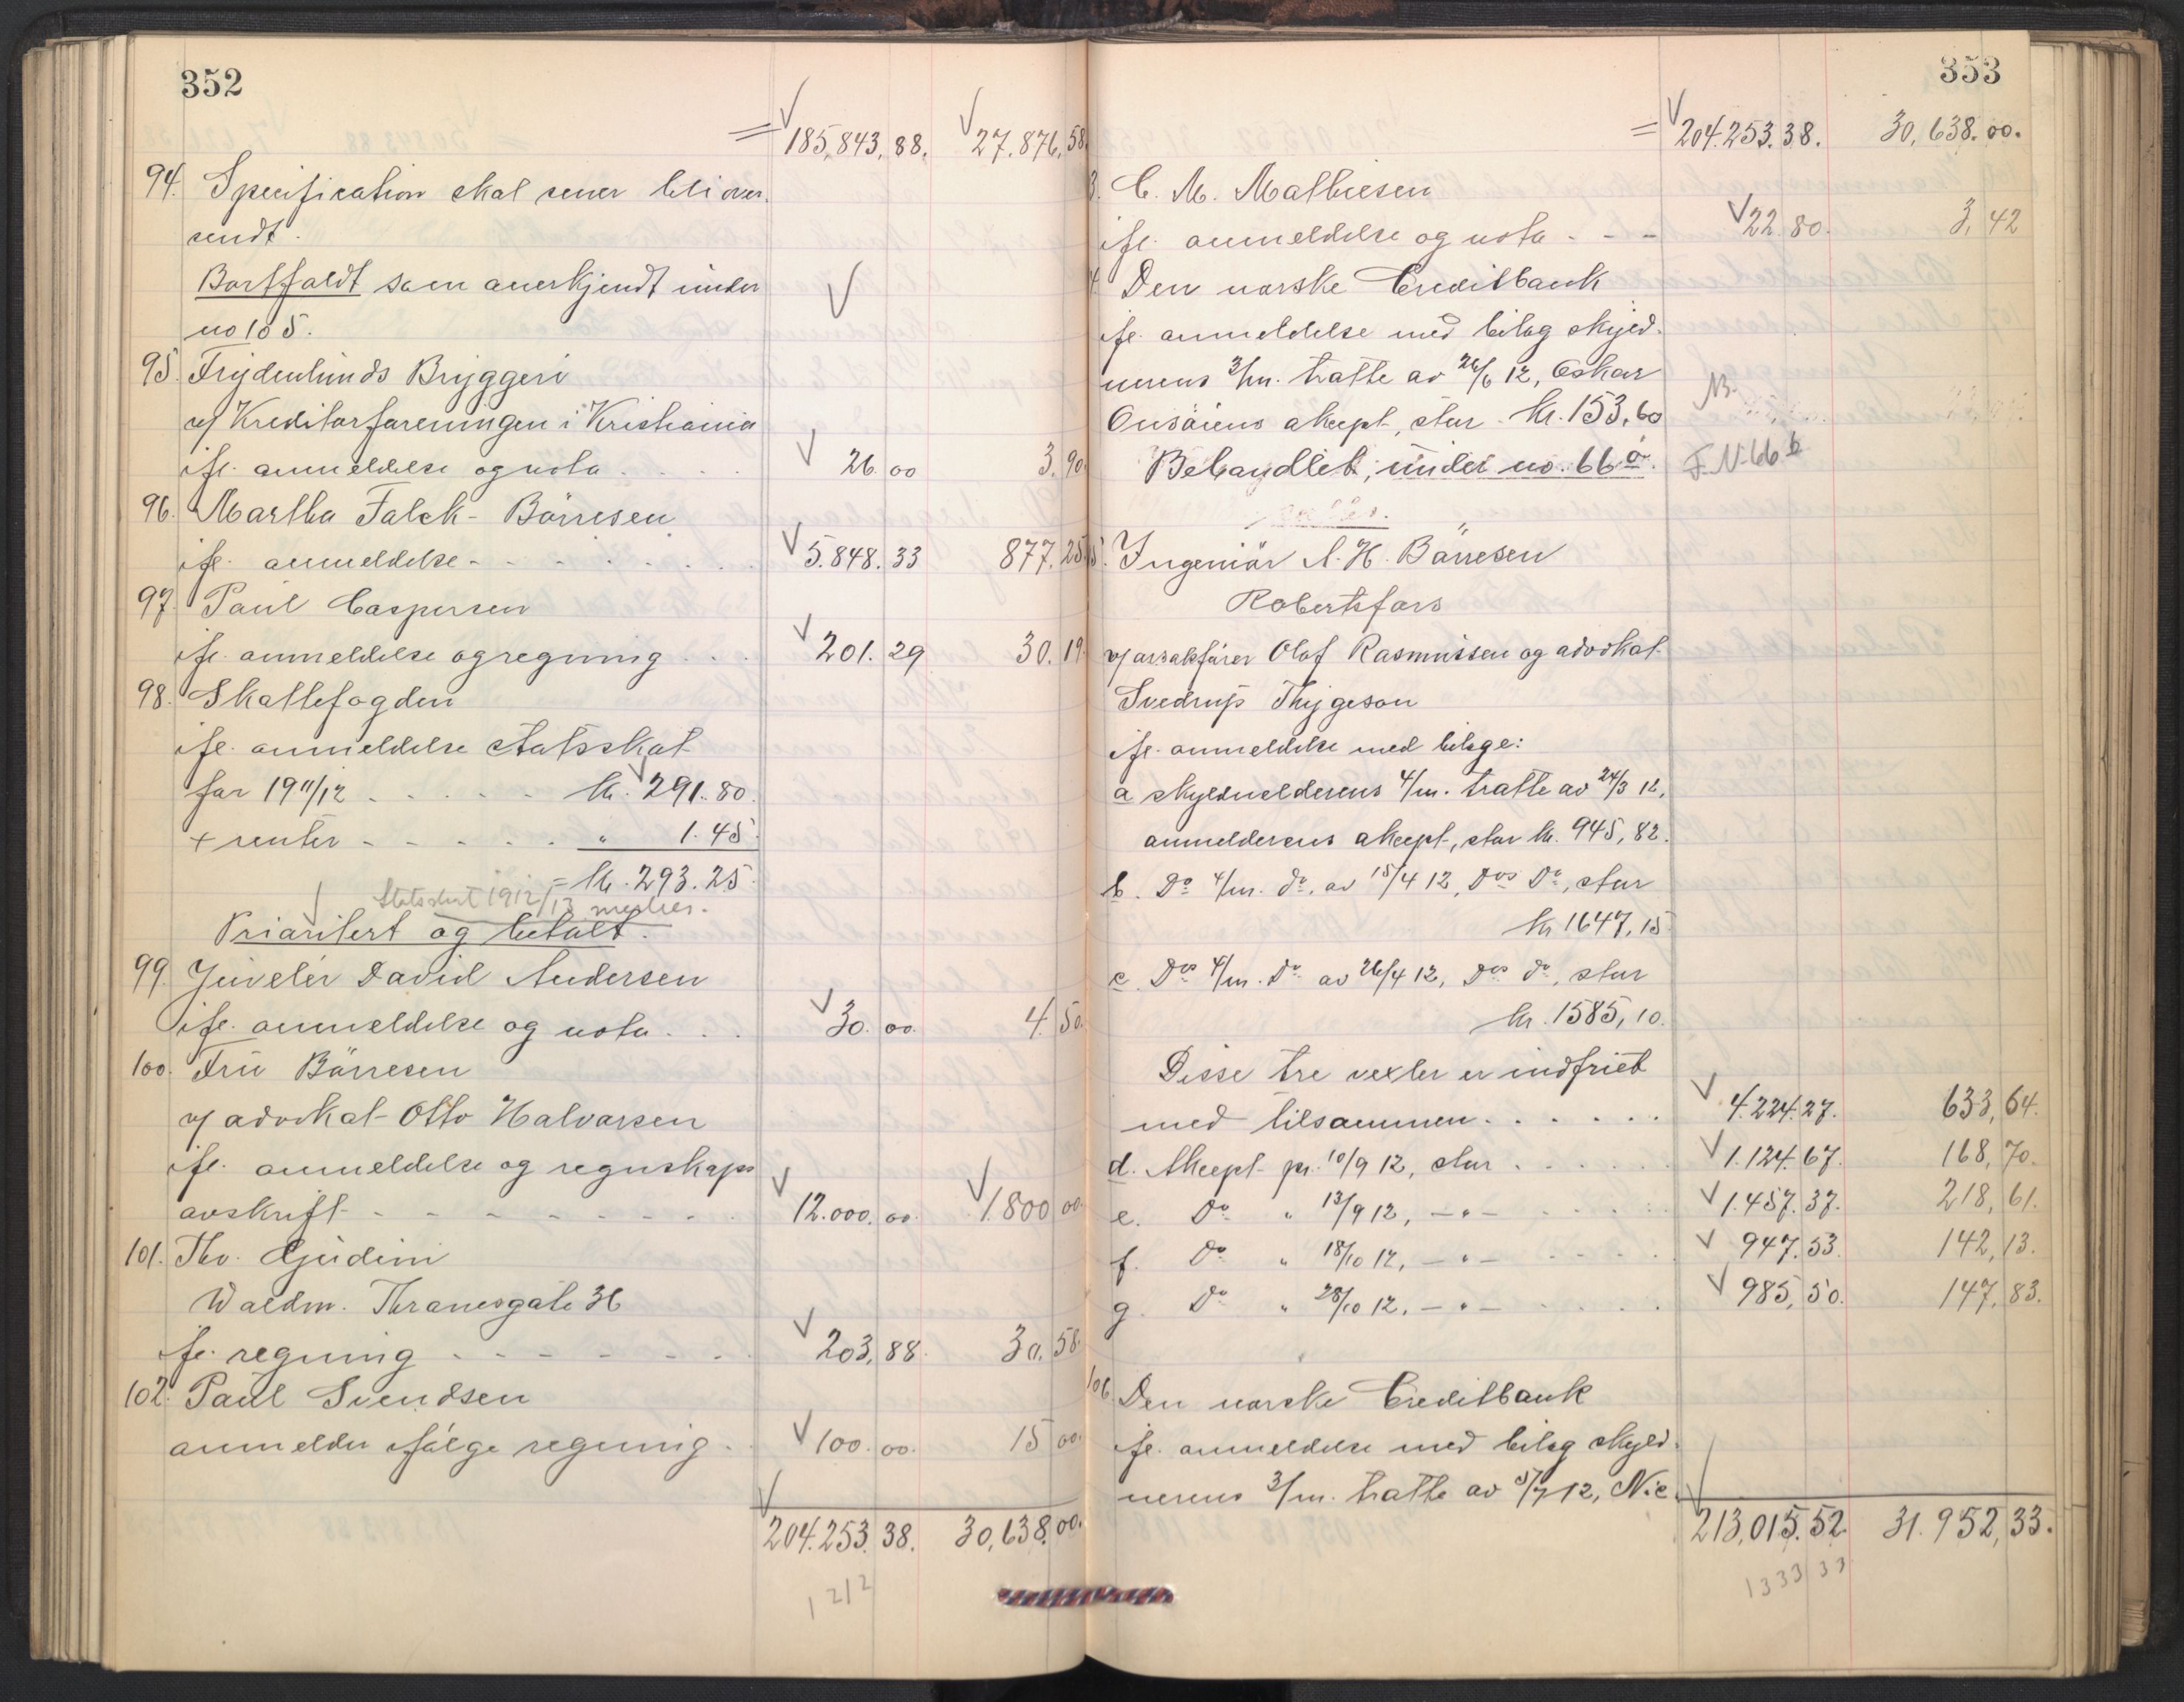 352
= 185,843,88. 27.876,58.
94. Specification skal sener bli over-
sendt.
Bortfaldt som anerkjendt under
no 105.
95. Frydenlunds Bryggeri
v/ Kreditorforeningen i Kristiania
ifl. anmeldelse og nota . . . . 26.00 3.90
96. Martha Falck-Börresen
ifl. anmeldelse - - - - . . . 5.848.33 877.25
97. Paul Caspersen
ifl. anmeldelse og regning . . . 201.29 30.19
98. Skattefogden
ifl. anmeldelse statsskat
for 1911/12 . - - - . kr. 291.80.
+ renter - - - - . . " 1.45.
= kr. 293.25.
Statsskat 1912/13
Prioritert og betalt.
99. Juvelér David Andersen
ifl. anmeldelse og nota . . . 30.00. 4.50.
100. Fru Börresen
v/ advokat Otto Halvorsen
ifl. anmeldelse og regnskaps
avskrift - - - - - - - . 12.000.00. 1.800 00.
101. Thv. Gjudim
Waldm. Thranesgate 36
ifl. regning - - - - - - . 203,88. 30.58.
102. Paul Svendsen
anmelder ifølge regning . 100.00. 15 00.
204.253.38. 30,638.00.
1212
353
= 204.253.38. 30,638.00.
3. C. M. Mathiesen
ifl. anmeldelse og nota - - - 22.80. 3,42
4. Den norske Creditbank
ifl. anmeldelse med bilag skyld-
nerens 3/m. tratte av 26/6 12, Oskar
Onsöiens aksept, stor - kr. 153,60
Behandlet, under no. 66 a. F. N. 66 b
5. Ingeniör A. H. Börresen
Robertsfors
v/ orsaksfører Olof Rasmussen og advokat
Svedrup Thygeson
ifl. anmeldelse med bilage:
a skyldnelderens 4/m. tratte av 24/3 12,
anmelderens aksept, stor kr. 945,82.
b. Do 4/m. do. av 15/4 12, Dos Do, stor
kr 1647,15
c. Dos 4/m. Do av 26/4 12, Dos do, stor
kr. 1585,10.
Disse tre vexler er indfriet
med tilsammen . . . . . . 4.224.27. 633,64.
d. Aksept pr. 10/9 12, stor . . . . . 1.124.67. 168,70.
e. Do " 13/9 12, - " - . . . . 1.457.37. 218,61.
f. Do " 18/10 12, - " - . . . . 947.53. 142,13.
g. Do " 28/10 12, - " - . . . . 985,50. 147,83.
106 Den norske Creditbank
ifl. anmeldelse med bilag skyld-
nerens 3/m. tratte av 5/7 12, Nic.
213,015.52. 31.952,33.
1333 33